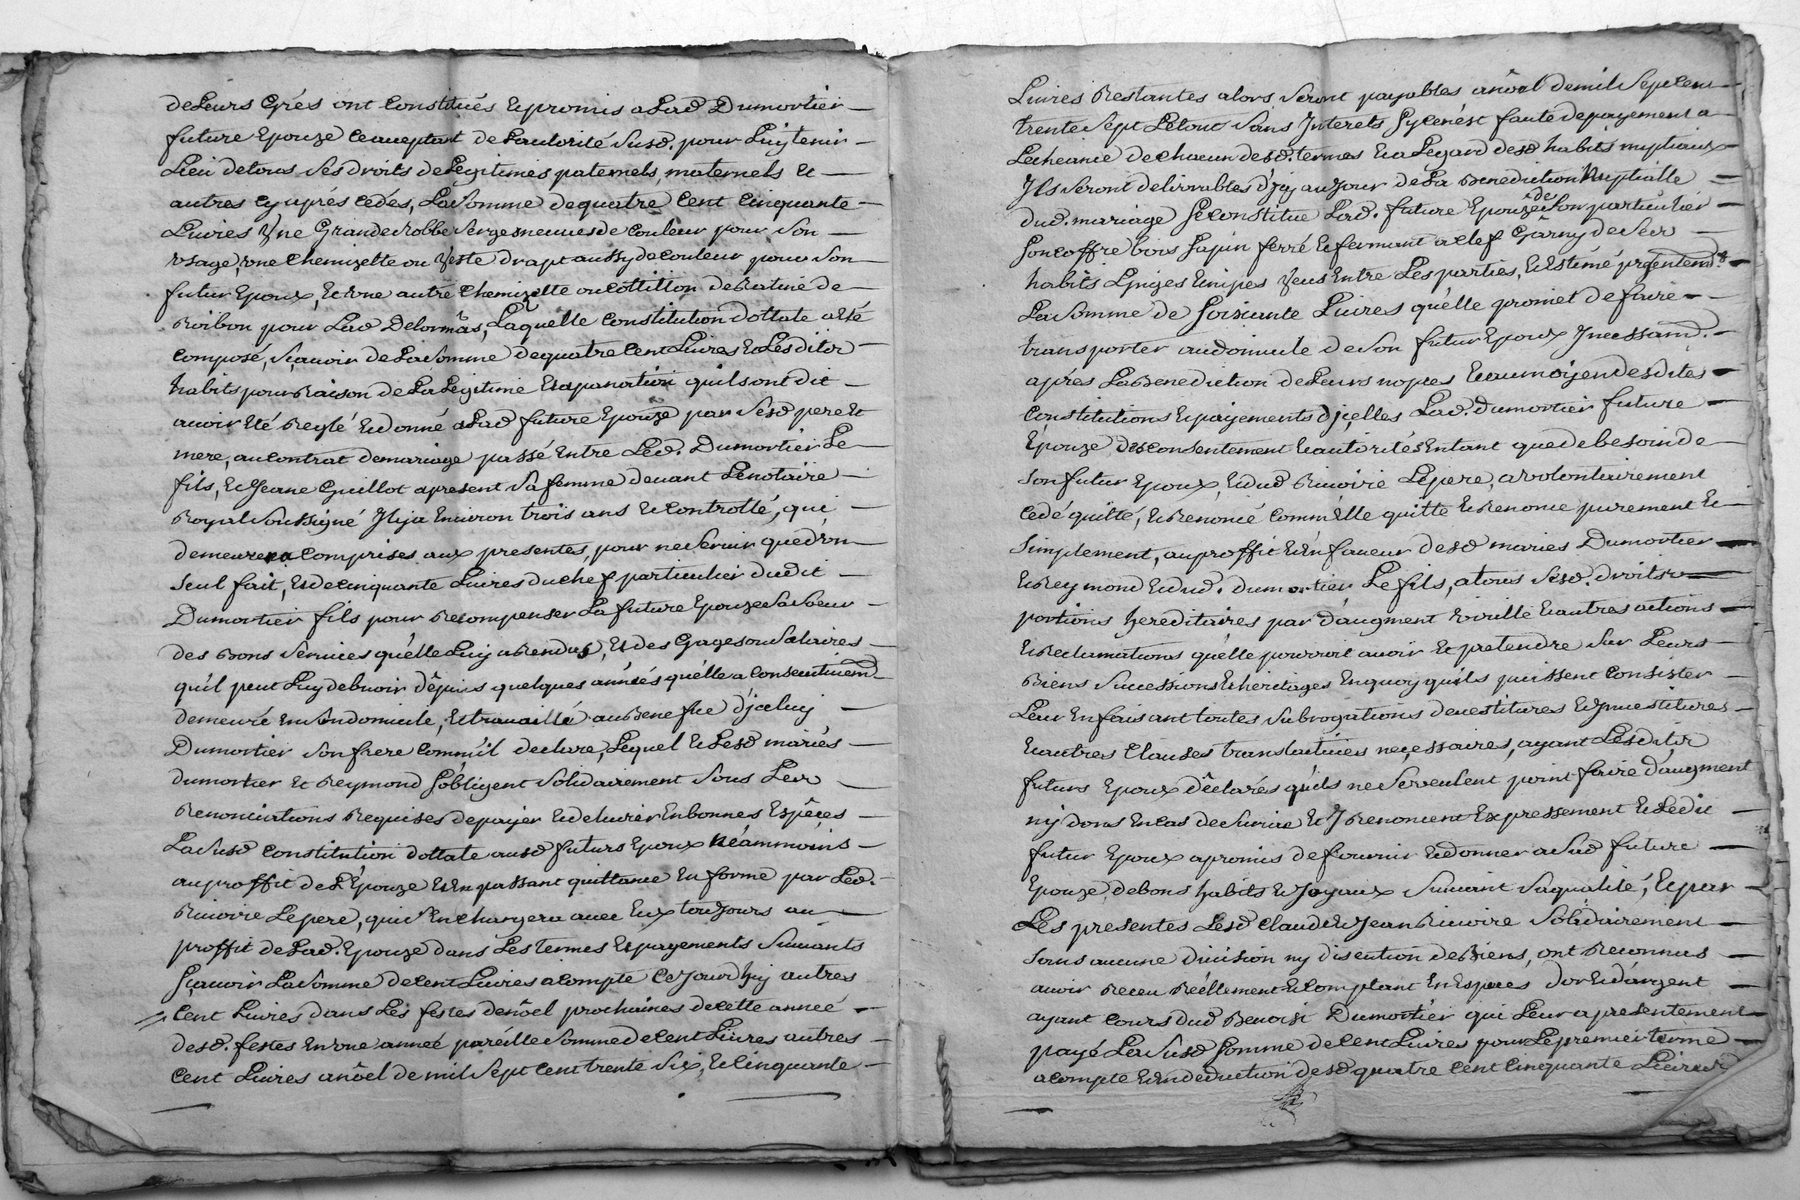 de Leurs Grés ont Constitués Et promis a Lad Dumortier
future Epouze Ce aceptant de L'autorité Susd. pour Luy tenir
Lieu de tous Ses droits de Legitimes paternels, maternels Et
autres cy aprés cedés, La Somme de quatre Cent Cinquante
Livres Une Grande Robbe Serges neuves de Couleur pour Son
Usage, une Chemizette ou Veste drapt aussy de Couleur pour Son
futur Epoux, Et Une autre Chemizette ou Cottillon de Ratine de
Roibon pour Lad Delormâs, Laquelle Constitution dottale a Eté
Composé, Sçavoir de La Somme de quatre Cent Livres Et Lesditz
habits pour Raison de La Legitime qu'ils ont dit
avoir Eté Reglé Et donné a Lad future Epouze par Sesd pere Et
mere, au Contrat de mariage passé Entre Led. Dumortier Le
fils, Et Jeane Guillot apresent Sa femme devant Le notaire
Royal Soussigné Il y a Environ trois ans Et Controllé, qui
demeurera Comprises aux presentes, pour ne Servir que d'un
Seul fait, Et de Cinquante Livres du chef particulier dudit
Dumortier fils pour Recompenser La future Epouze Sa Soeur
des Bons Services qu'elle Luy a Rendus, Et des Gages ou Salaires
qu'il peut Luy debvoir dêpuis quelques années qu'elle a Consecutivemt
demeuré En Son domicile, Et travaillé au Benefice d'jceluy
Dumortier Son frere Comm'il declare, Lequel Et Lesd mariés
dumortier Et Reymond S'obligent Solidairement Sous Leur
Renonciations Requises de payer Et delivrer En bonnes Espêces
La Susd Constitution dottale ausd futurs Epoux Néammoins
au proffit de L'Epouze Et En passant quittance En forme par Led.
Rivoire Le pere, qui S'En chargera avec Eux toujours au
proffit de Lad. Epouze dans Les termes Et payements Suivants
Sçavoir La Somme de Cent Livres a Compte Ce Jourdhuy autres
Cent Livres dans Les festes de nôel prochaines de Cette année
desd. festes En Une année paréille Somme de Cent Livres autres
Cent Livres a nôel de mil Sept Cent trente Six, Et Cinquante
Livres Restantes alors Seront payables a nôel de mil Sept Cent
trente Sept Le tout Sans Interets Sy Ce n'ést faute de payement a
L'echeance de chacun desd. termes Et a L'egard desd habits nuptiaux
Ils Seront delivrables d'jcy au Jour de La Benediction Nuptialle
dud. mariage Se Constitue Lad. future Epouze de Son particulier
Son Coffre bois Sapin ferré Et fermant a Clef Garny de Ses
habits Linges Veus Entre Les parties, Et Estimé
La Somme de Soixante Livres qu'elle promet de faire
transporter au domicile de Son futur Epoux Incessamt.
aprés La Benediction de Leurs nopces Et au moÿen desdites
Constitutions Et payements d'jcelles Lad. Dumortier future
Epouze des Consentement Et autorités Entant que de besoin de
Son futur Epoux, Et dud Rivoire Le pere, a Volontairement
Cedé quitté, Et Renoncé Comm'Elle quitte Et Renonce purement Et
Simplement, au proffit Et En faveur desd mariés Dumortier
Et Reymond Et dud. Dumortier Le fils, a tous Sesd. droits
portions hereditaires par d'augment Et autres actions
Et Reclamations qu'elle pourroit avoir Et pretendre Sur Leurs
Biens Successions Et héritages En quoy qu'ils puissent Consister
Leur En faisant toutes Subrogations devestitures Et Jnvestitures
Et autres Clauses translatives neçessaires, ayant Lesditz
futurs Epoux dêclarés qu'ils ne Se veulent point faire d'augment
ny dons En Cas de Survie Et Y Renoncent Expressement Et Ledit
futur Epoux a promis de fournir Et donner a Sad future
Epouze, de bons habits Et Joyaux Suivant Sa qualité, Et par
Les presentes Lesd Claude Et Jean Rivoire Solidairement
Sans aucune division ny discution de Biens, ont Reconnus
avoir Receu Réellement Et Comptant En Especes d'or Et d'argent
ayant Cours dud Benoist Dumortier qui Leur a presentement
payé La Susd Somme de Cent Livres pour Le premier terme
a Compte Et En deduction desd quatre Cent Cinquante Livres